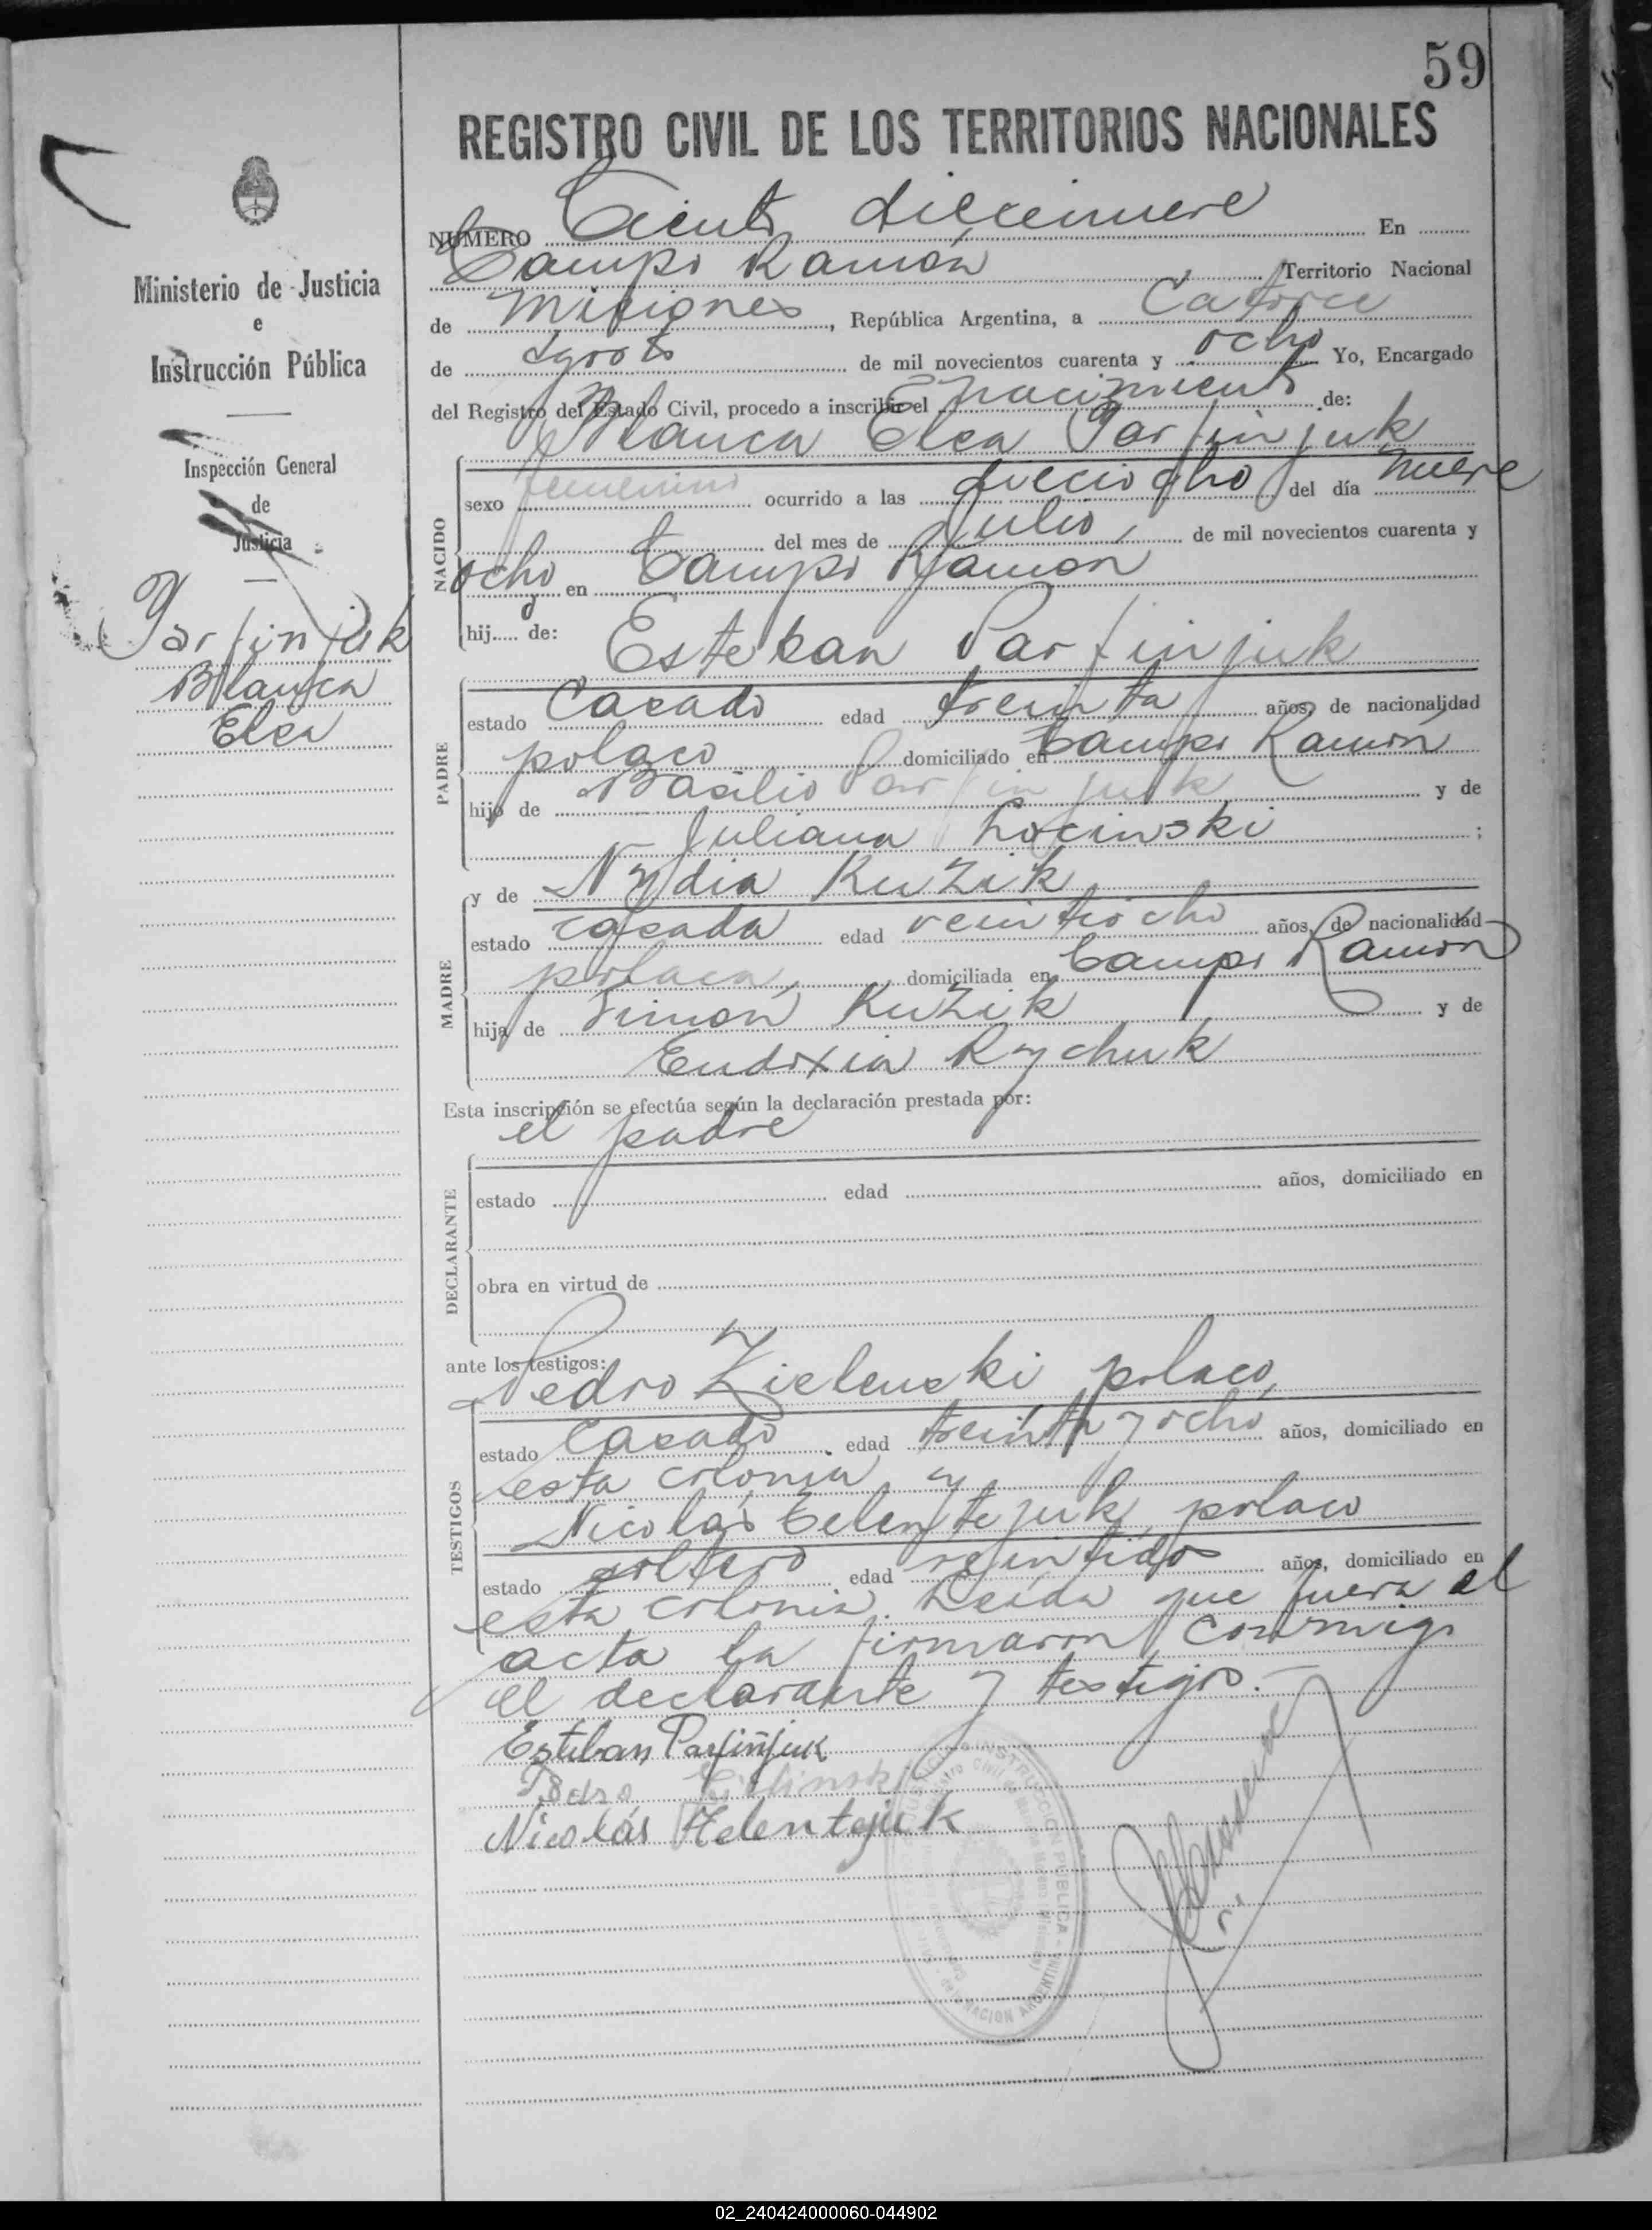 59
REGISTRO CIVIL DE LOS TERRITORIOS NACIONALES
Ministerio de Justicia
e
Instrucción Pública
Inspección General
de
Justicia
Parfinjuk
Blanca
Elsa
NUMERO Ciento diecinueve En
Campo Ramón Territorio Nacional
de Misiones, República Argentina, a Catorce
de Agosto de mil novecientos cuarenta y ocho Yo, Encargado
del Registro del Estado Civil, procedo a inscribir el nacimiento de:
Blanca Elsa Parfinjuk
NACIDO
sexo femenino ocurrido a las dieciocho del día nueve
del mes de Julio, de mil novecientos cuarenta y
ocho en Campo Ramón
hija de: Esteban Parfinjuk
PADRE
estado Casado edad treinta años, de nacionalidad
polaco domiciliado en Campo Ramón
hijo de Basilio Parfinjuk y de
Juliana Locinski ;
y de Nydia Kuzik
MADRE
estado casada edad veintiocho años, de nacionalidad
polaca, domiciliada en Campo Ramón
hija de Simón Kuzik y de
Eudoxia Rychuk
Esta inscripción se efectúa según la declaración prestada por:
el padre
DECLARANTE
estado edad años, domiciliado en
obra en virtud de
ante los testigos:
Pedro Zielenski polaco,
TESTIGOS
estado Casado edad treinta y ocho años, domiciliado en
esta colonia, y
Nicolás Celentejuk, polaco
estado soltero edad veintidos años, domiciliado en
esta colonia. Leída que fuera el
acta la firmaron conmigo
el declarante y testigos.—
Esteban Parfiñjuk
Pedro
Nicolás Zelentejuk
INSTRUCCION PUBLICA
NACION ARGENTINA
02_240424000060-044902